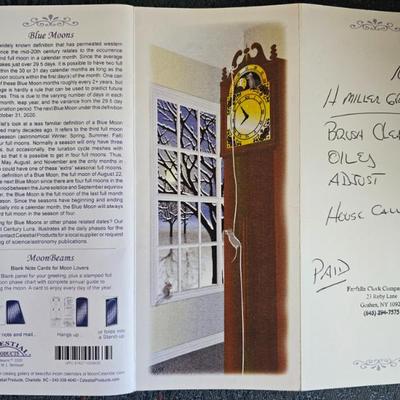 Blue Moons
widely known definition that has permeated western
since the mid-20th century relates to the occurrence
full moon in a calendar month. Since the average
takes just over 29.5 days, it is possible to have two full
within the 30 or 31 day calendar months as long as the
moon occurs within the first day(s) of the month. One can
of these Blue Moon months roughly every 2+ years, but
is hardly a rule that can be used to predict future
This is due to the varying number of days in each
month, leap year, and the variance from the 29.5 day
lunation period. The next Blue Moon under this definition
October 31, 2020.
look at a less familiar definition of a Blue Moon
many decades ago. It refers to the third full moon
season (astronomical Winter, Spring, Summer, Fall)
four full moons. Normally a season will only have three
but occasionally, the lunation cycle meshes with
so that it is possible to get in four full moons. Thus,
May, August, and November are the only months in
could have one of these "extra" seasonal full moons.
definition of a Blue Moon, the full moon of August 22,
next Blue Moon since there are four full moons in the
period between the June solstice and September equinox
is the full moon of the last full month
season. Since the seasons have beginning and ending
into a calendar month, the Blue Moon will always
full moon in the season of four.
for Blue Moons or other phase related dates? Our
Century Luna. Illustrates all the daily phases for the
contact Celestial Products for a local supplier or request
of science/astronomy publications.
MoonBeams
Blank Note Cards for Moon Lovers
Blank panel for your greeting, plus a stamped full
moon phase chart with complete annual guide to
the moon. A card to enjoy every day of the year.
note and mail...
Hangs up
or folds into
a Stand-up
CELESTIAL
PRODUCTS
H MILLER
BRUSH
OILED
ADJUST
HOUSE CALL
PAID
Ferfolla Clock Company
23 Ruby Lane
Goshen, NY 1092
(845) 294-7575